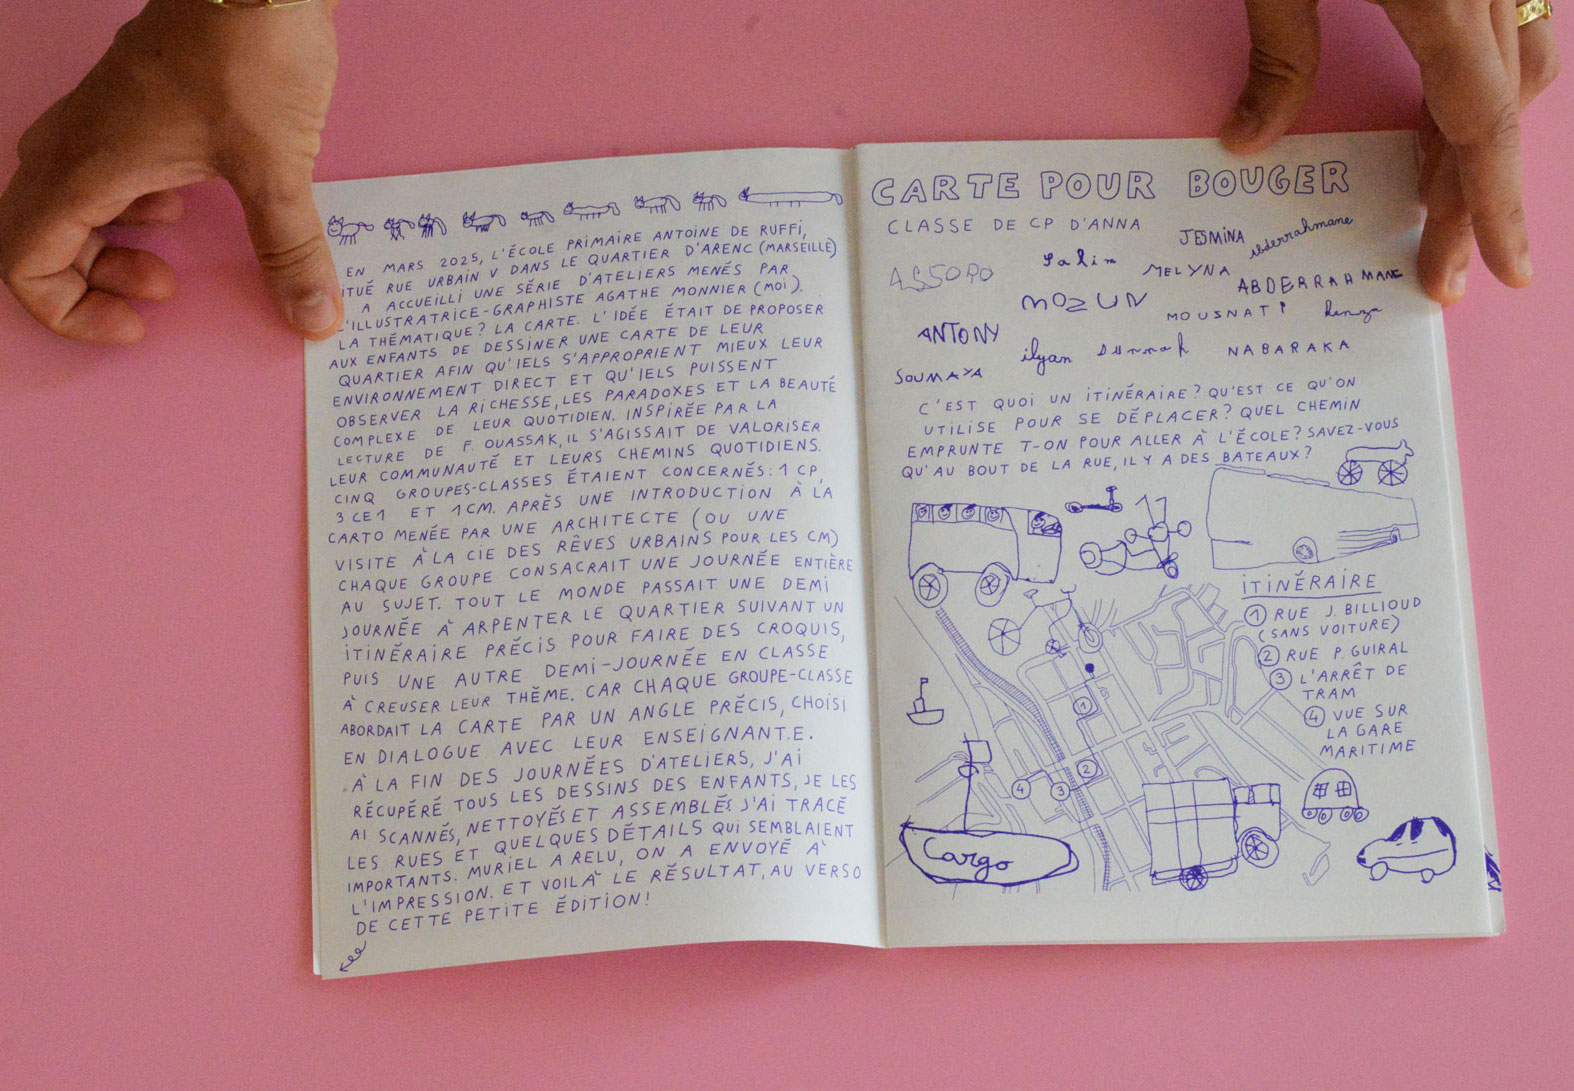 EN MARS 2025, L'ÉCOLE PRIMAIRE ANTOINE DE RUFFI,
SITUÉ RUE URBAIN V DANS LE QUARTIER D'ARENC (MARSEILLE)
A ACCUEILLI UNE SÉRIE D'ATELIERS MENÉS PAR
L'ILLUSTRATRICE-GRAPHISTE AGATHE MONNIER (MOI).
LA THÉMATIQUE? LA CARTE. L'IDÉE ÉTAIT DE PROPOSER
AUX ENFANTS DE DESSINER UNE CARTE DE LEUR
QUARTIER AFIN QU'IELS S'APPROPRIENT MIEUX LEUR
ENVIRONNEMENT DIRECT ET QU'IELS PUISSENT
OBSERVER LA RICHESSE, LES PARADOXES ET LA BEAUTÉ
COMPLEXE DE LEUR QUOTIDIEN. INSPIRÉE PAR LA
LECTURE DE F. OUASSAK, IL S'AGISSAIT DE VALORISER
LEUR COMMUNAUTÉ ET LEURS CHEMINS QUOTIDIENS.
CINQ GROUPES-CLASSES ÉTAIENT CONCERNÉS: 1 CP,
3 CE1 ET 1 CM. APRÈS UNE INTRODUCTION À LA
CARTO MENÉE PAR UNE ARCHITECTE (OU UNE
VISITE À LA CIE DES RÊVES URBAINS POUR LES CM)
CHAQUE GROUPE CONSACRAIT UNE JOURNÉE ENTIÈRE
AU SUJET. TOUT LE MONDE PASSAIT UNE DEMI
JOURNÉE À ARPENTER LE QUARTIER SUIVANT UN
ITINÉRAIRE PRÉCIS POUR FAIRE DES CROQUIS,
PUIS UNE AUTRE DEMI-JOURNÉE EN CLASSE
À CREUSER LEUR THÈME. CAR CHAQUE GROUPE-CLASSE
ABORDAIT LA CARTE PAR UN ANGLE PRÉCIS, CHOISI
EN DIALOGUE AVEC LEUR ENSEIGNANT.E.
À LA FIN DES JOURNÉES D'ATELIERS, J'AI
RÉCUPÉRÉ TOUS LES DESSINS DES ENFANTS, JE LES
AI SCANNÉS, NETTOYÉS ET ASSEMBLÉS J'AI TRACÉ
LES RUES ET QUELQUES DÉTAILS QUI SEMBLAIENT
IMPORTANTS. MURIEL A RELU, ON A ENVOYÉ À
L'IMPRESSION. ET VOILÀ LE RÉSULTAT, AU VERSO
DE CETTE PETITE ÉDITION!
CARTE POUR BOUGER
CLASSE DE CP D'ANNA
JESMINA
abderrahmane
Salim
MELYNA
ABDERRAHMANE
MOZUN
MOUSNATI
Kenza
ANTONY
ilyan
NABARAKA
SOUMAYA
C'EST QUOI UN ITINÉRAIRE? QU'EST CE QU'ON
UTILISE POUR SE DÉPLACER? QUEL CHEMIN
EMPRUNTE T-ON POUR ALLER À L'ÉCOLE? SAVEZ-VOUS
QU'AU BOUT DE LA RUE, IL Y A DES BATEAUX?
ITINÉRAIRE
1 RUE J. BILLIOUD
(SANS VOITURE)
2 RUE P. GUIRAL
3 L'ARRÊT DE
TRAM
4 VUE SUR
LA GARE
MARITIME
1
2
3
4
Cargo